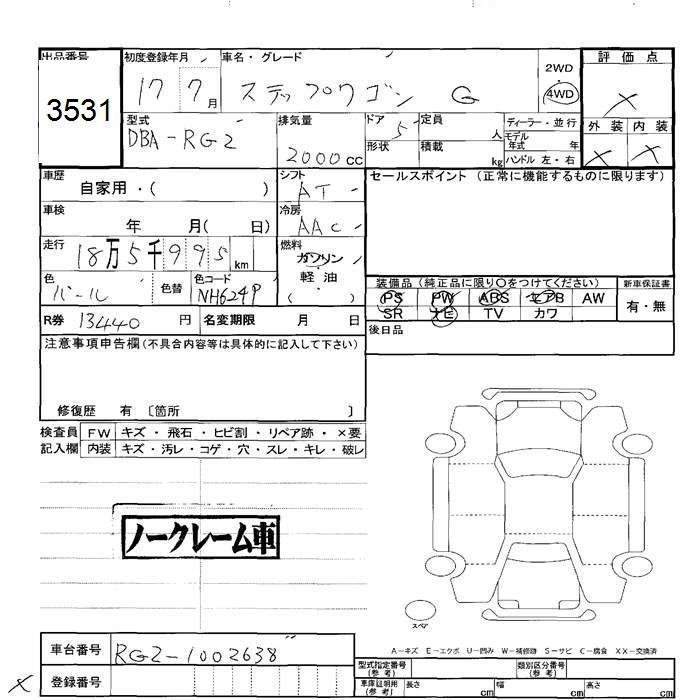 出品番号
3531
初度登録年月
17 7月
車名・グレード
ステップワゴン G
2WD
4WD
評価点
×
外装 内装
× ×
型式
DBA-RG2
排気量
2000cc
ドア 5
形状
定員 人
積載 kg
ディーラー・並行
モデル年式 年
ハンドル 左・右
車歴
自家用・( )
シフト
AT
セールスポイント (正常に機能するものに限ります)
車検
年 月( 日)
冷房
AAC
走行
18万5千995km
燃料
ガソリン
軽油
( )
色
パール
色替
色コード
NH624P
装備品 (純正品に限り○をつけてください)
新車保証書
PS PW ABS エアB AW
有・無
SR ナビ TV カワ
R券 13440 円
名変期限 月 日
後日品
注意事項申告欄 (不具合内容等は具体的に記入して下さい)
修復歴 有 〔箇所 〕
検査員 FW キズ・飛石・ヒビ割・リペア跡・×要
記入欄 内装 キズ・汚レ・コゲ・穴・スレ・キレ・破レ
ノークレーム車
スペア
A-キズ E-エクボ U-凹み W-補修跡 S-サビ C-腐食 XX-交換済
車台番号
RG2-1002638
登録番号
×
型式指定番号
(参考)
類別区分番号
(参考)
車庫証明用
(参考)
長さ cm
幅 cm
高さ cm